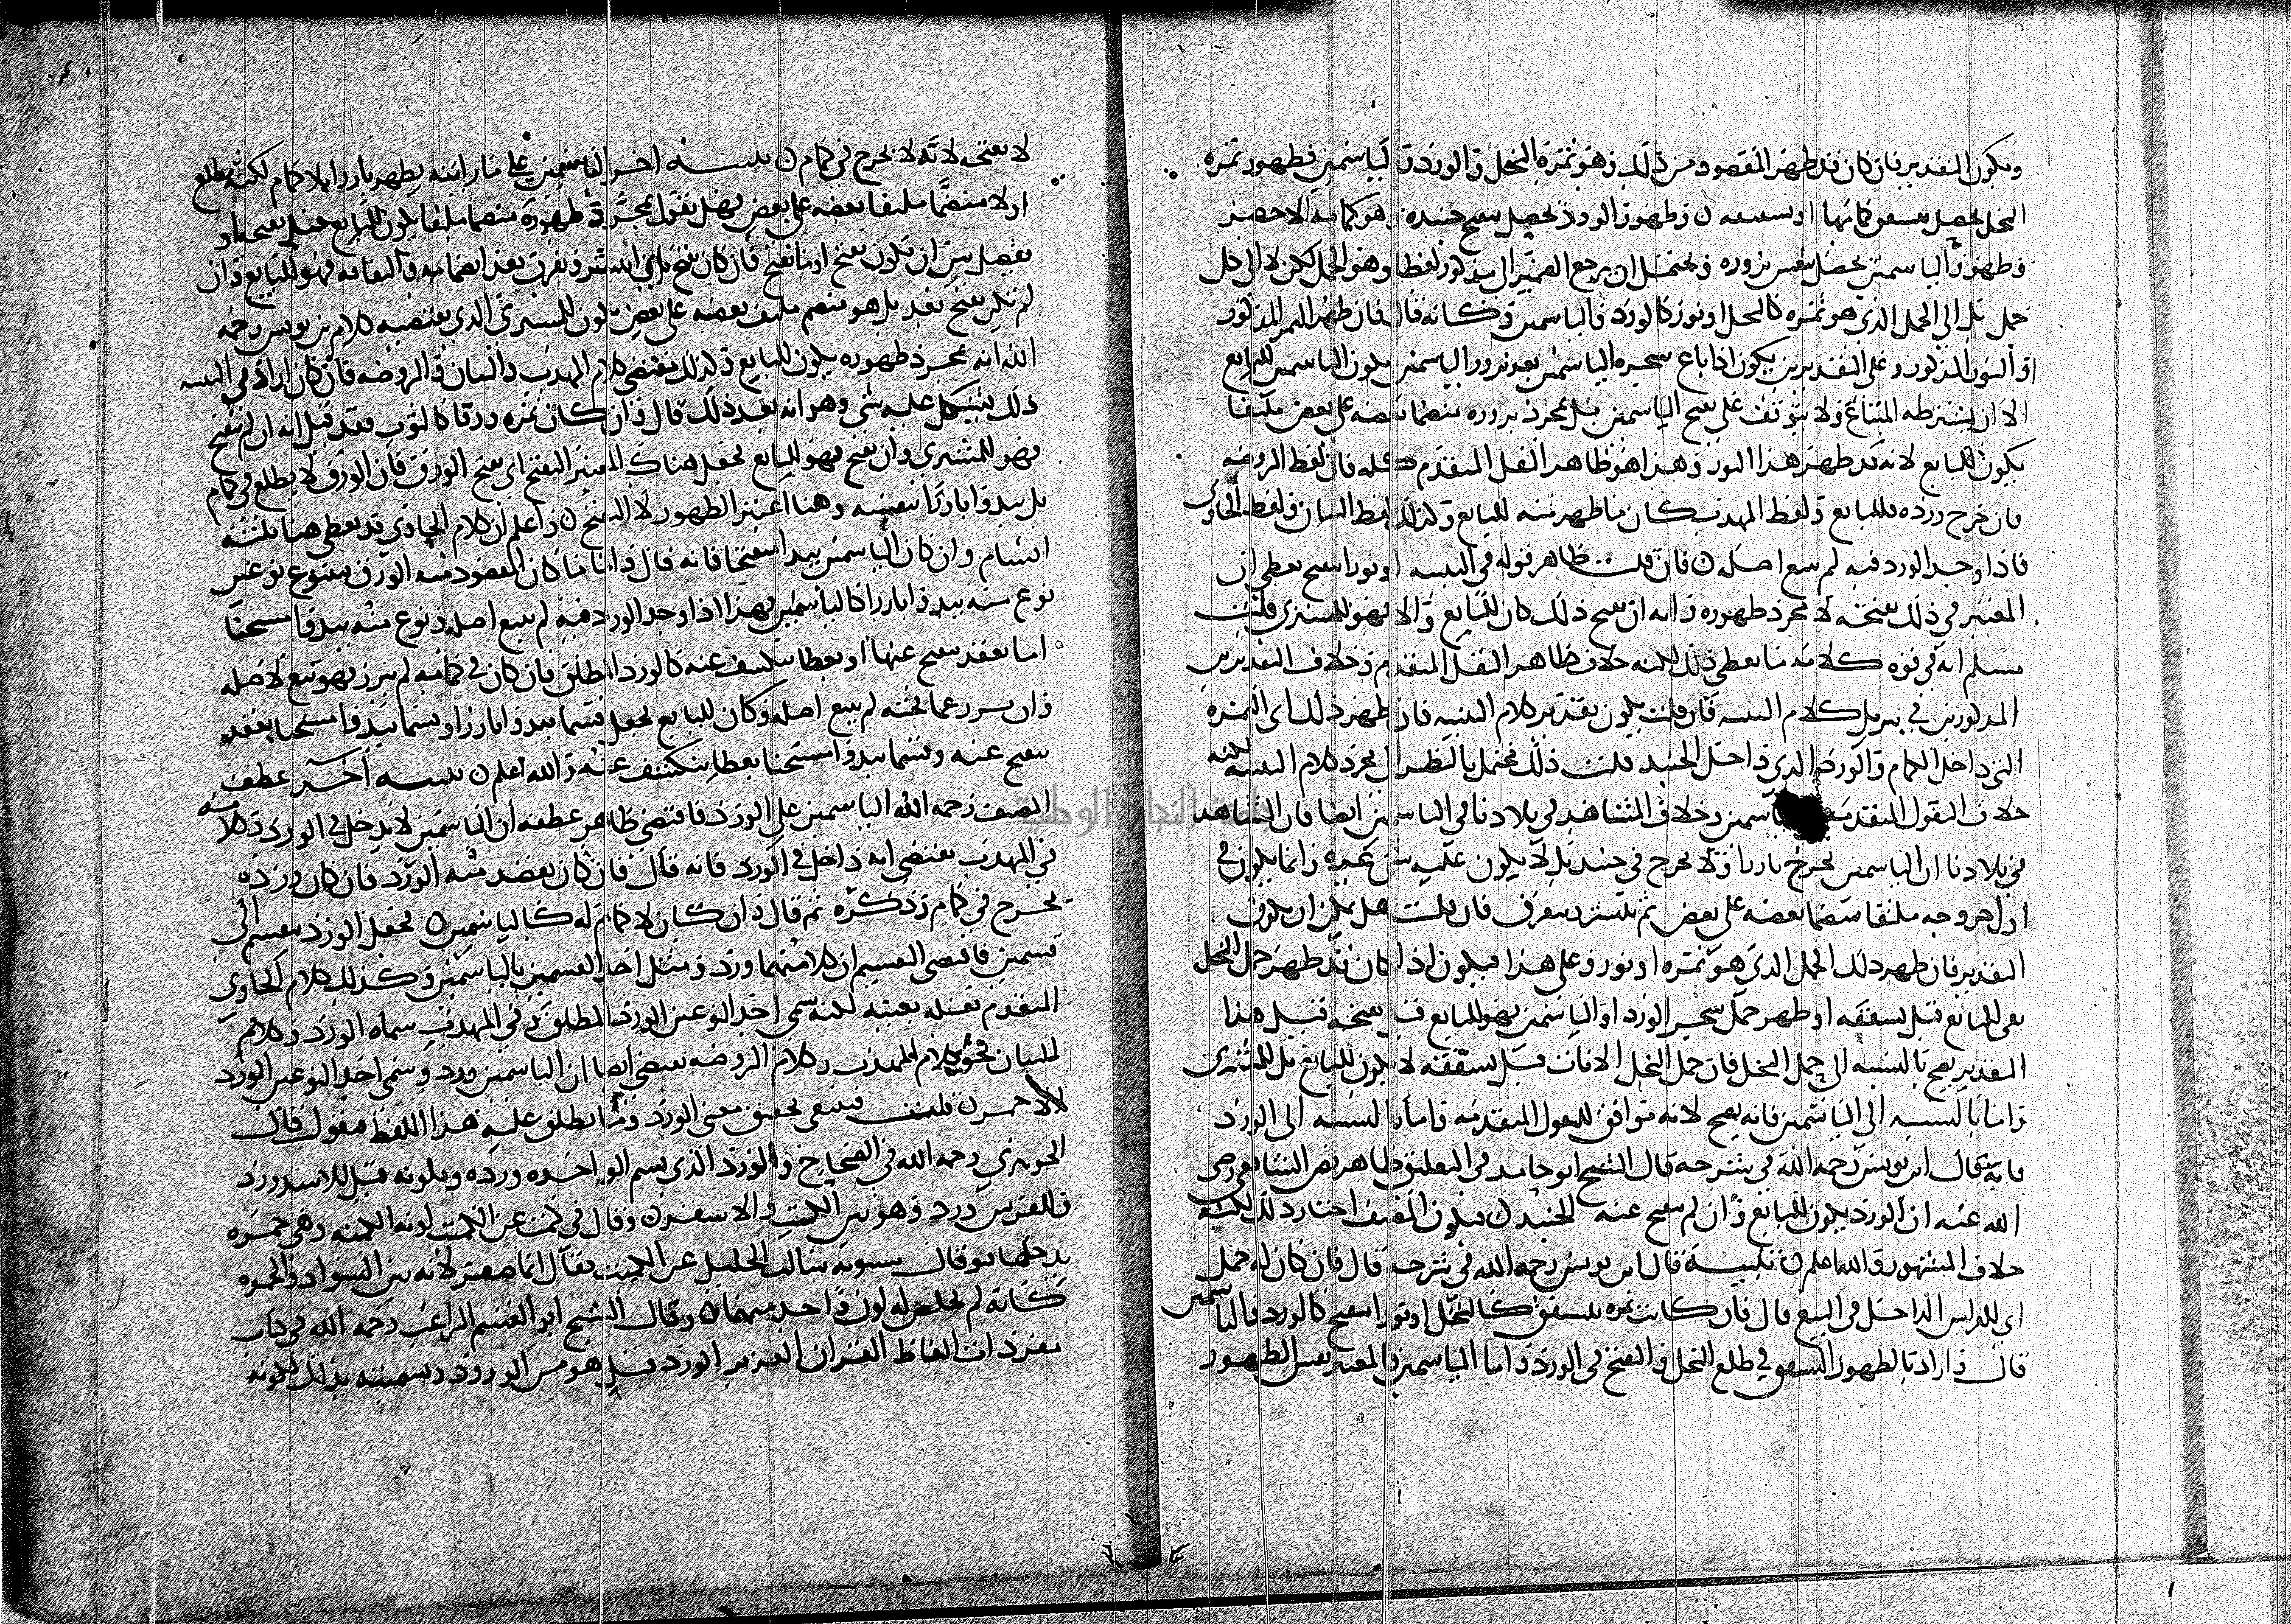 ويكون التقدير فان كان قد ظهر المقصود من ذلك وهو ثمرة النخل والورد والياسمين فظهور ثمرة
النخل يحصل بتشقق كمامها او تشققه وظهور الورد يحصل بتفتح جنبذه وهو كمامه الاخضر
وظهور الياسمين يحصل بنفس بروزه ويحتمل ان يرجع الضمير الى مذكور لفظا وهو الحمل لكن لا الى كل
حمل بل الى الحمل الذي هو ثمرة كالنخل او نور كالورد والياسمين وكانه قال فان ظهر الثمر المذكور
او النور المذكور وعلى التقديرين يكون اذا باع شجرة الياسمين بعد بروز الياسمين يكون الياسمين للبايع
الا ان يشترطه المبتاع ولا يتوقف على تفتح الياسمين بل بمجرد بروزه منضما بعضه على بعض ملتفا
يكون للبايع لانه قد ظهر هذا النور وهذا هو ظاهر النقل المتقدم كله فان لفظ الروضة
فان خرج ورده فللبايع ولفظ المهذب كان ما ظهر منه للبايع وكذلك لفظ البيان ولفظ الحاوي
فاذا وجد الورد فيه لم يتبع اصله فان قلت ظاهر قوله في التنبيه او نورا يتفتح يعطي ان
المعتبر في ذلك تفتحه لا مجرد ظهوره وانه ان تفتح ذلك كان للبايع والا فهو للمشتري قلت
مسلم انه في قوة كلامه ما يعطي ذلك لكنه خلاف ظاهر النقل المتقدم وخلاف التقديرين
المذكورين في تنزيل كلام التنبيه فان قلت يكون تقدير كلام التنبيه فان ظهر ذلك اي الثمرة
التي داخل الكمام والورد الذي داخل الجنبد قلت ذلك محتمل بالنظر الى مجرد كلام التنبيه لكنه
خلاف النقول المتقدمة الياسمين وخلاف المشاهد في بلادنا في الياسمين ايضا فان المشاهد
في بلادنا ان الياسمين يخرج بارزا ولا يخرج في جنبد بل لا يكون عليه شي غيره وانما يكون في
اول خروجه ملتفا منضما بعضه على بعض ثم ينتشر ويتفرق فان قلت هل يمكن ان يكون
التقدير فان ظهر ذلك الحمل الذي هو ثمرة او نور وعلى هذا فيكون اذا كان قد ظهر حمل النخل
بقي للبايع قبل تشققه او ظهر حمل شجر الورد او الياسمين فهو للبايع قبل تفتحه قيل هذا
التقدير يصح بالنسبة الى حمل النخل فان حمل النخل الاناث قبل تشققه لا يكون للبايع بل للمشتري
واما بالنسبة الى الياسمين فانه يصح لانه موافق للنقول المتقدمة واما بالنسبة الى الورد
فانه قال ابن يونس رحمه الله في شرحه قال الشيخ ابو حامد في التعليق ظاهر نص الشافعي رضي
الله عنه ان الورد يكون للبايع وان لم يتفتح عنه الجنبد فيكون المصنف اختار ذلك لكنه
خلاف المشهور والله اعلم تنبيه قال ابن يونس رحمه الله في شرحه قال فان كان له حمل
اي للغراس الداخل في البيع قال فان كانت ثمرة تتشقق كالنخل او نورا يتفتح كالورد والياسمين
قال واراد بالظهور التشقق في طلع النخل والتفتح في الورد واما الياسمين فالمعتبر نفس الظهور
لا تفتحه لانه لا يخرج في كمام تنبيه اخر الياسمين على ما رايته يظهر بارزا بلا كمام لكنه يطلع
اولا منضما ملتفا بعضه على بعض فهل نقول بمجرد ظهوره منضما ملتفا يكون للبايع قبل تفتحه او
يفصل بين ان يكون تفتح او ما تفتح فان كان تفتح اي انتشر وتفرق بعد انضمامه والتفافه فهو للبايع وان
لم يكن تفتح بعد بل هو منضم ملتف بعضه على بعض يكون للمشتري الذي يقتضيه كلام بن يونس رحمه
الله انه بمجرد ظهوره يكون للبايع وكذلك يقتضي كلام المهذب والبيان والروضة فان كان اراد في التنبيه
ذلك يشكل عليه شي وهو انه بعد ذلك قال وان كان ثمره ورقا كالتوت فقد قيل انه ان لم يتفتح
فهو للمشتري وان تفتح فهو للبايع فجعل هناك المعتبر التفتح اي تفتح الورق فان الورق لا يطلع في كمام
بل يبدو بارزا بنفسه وهنا اعتبر الظهور لا التفتح واعلم ان كلام الحاوي قد يعطي هنا ثلثة
اقسام وان كان الياسمين يبدا متفتحا فانه قال واما ما كان المقصود منه الورق فيتنوع نوعين
نوع منه يبدو بارزا كالياسمين فهذا اذا وجد الورد فيه لم يتبع اصله ونوع منه يبدو مستجنا
اما بعقد يتفتح عنها او بغطا ينكشف عنه كالورد المطلق فان كان في كمامه لم يبرز فهو تبع لاصله
وان برز عما يجنه لم يتبع اصله وكان للبايع فجعل قسما يبدو بارزا وقسما يبدو مستجنا بعقد
يتفتح عنه وقسما يبدو مستجنا بغطا ينكشف عنه والله اعلم تنبيه اخر عطف
المصنف رحمه الله الياسمين على الورد فاقتضى ظاهر عطفه ان الياسمين لا يدخل في الورد وكلامه
في المهذب يقتضي انه داخل في الورد فانه قال فان كان يقصد منه الورد فان كان ورده
يخرج في كمام وذكره ثم قال وان كان لا كمام له كالياسمين فجعل الورد ينقسم الى
قسمين فاقتضى التقسيم ان كلا منهما ورد ومثل احد القسمين بالياسمين وكذلك كلام الحاوي
المتقدم نقله بعينه لكنه سمى احد النوعين الورد المطلق وفي المهذب سماه الورد وكلام
البيان نحو كلام المهذب وكلام الروضة يقتضي ايضا ان الياسمين ورد وسمى احد النوعين الورد
الاحمر قلت فينبغي تحقيق معنى الورد وما يطلق عليه هذا اللفظ فنقول قال
الجوهري رحمه الله في الصحاح والورد الذي يشم الواحدة وردة وبلونه قيل للاسد ورد
وللفرس ورد وهو بين الكميت والاشقر وقال في كمت عن الكميت لونه الكمتة وهي حمرة
يدخلها قنو قال سيبويه سالت الخليل عن الكميت فقال انما صغر لانه بين السواد والحمرة
كانه لم يخلص له لون واحد منهما وقال الشيخ ابو القسم الراغب رحمه الله في كتاب
مفردات الفاظ القران العزيز الورد قيل هو من الورود وتسميته بذلك لكونه